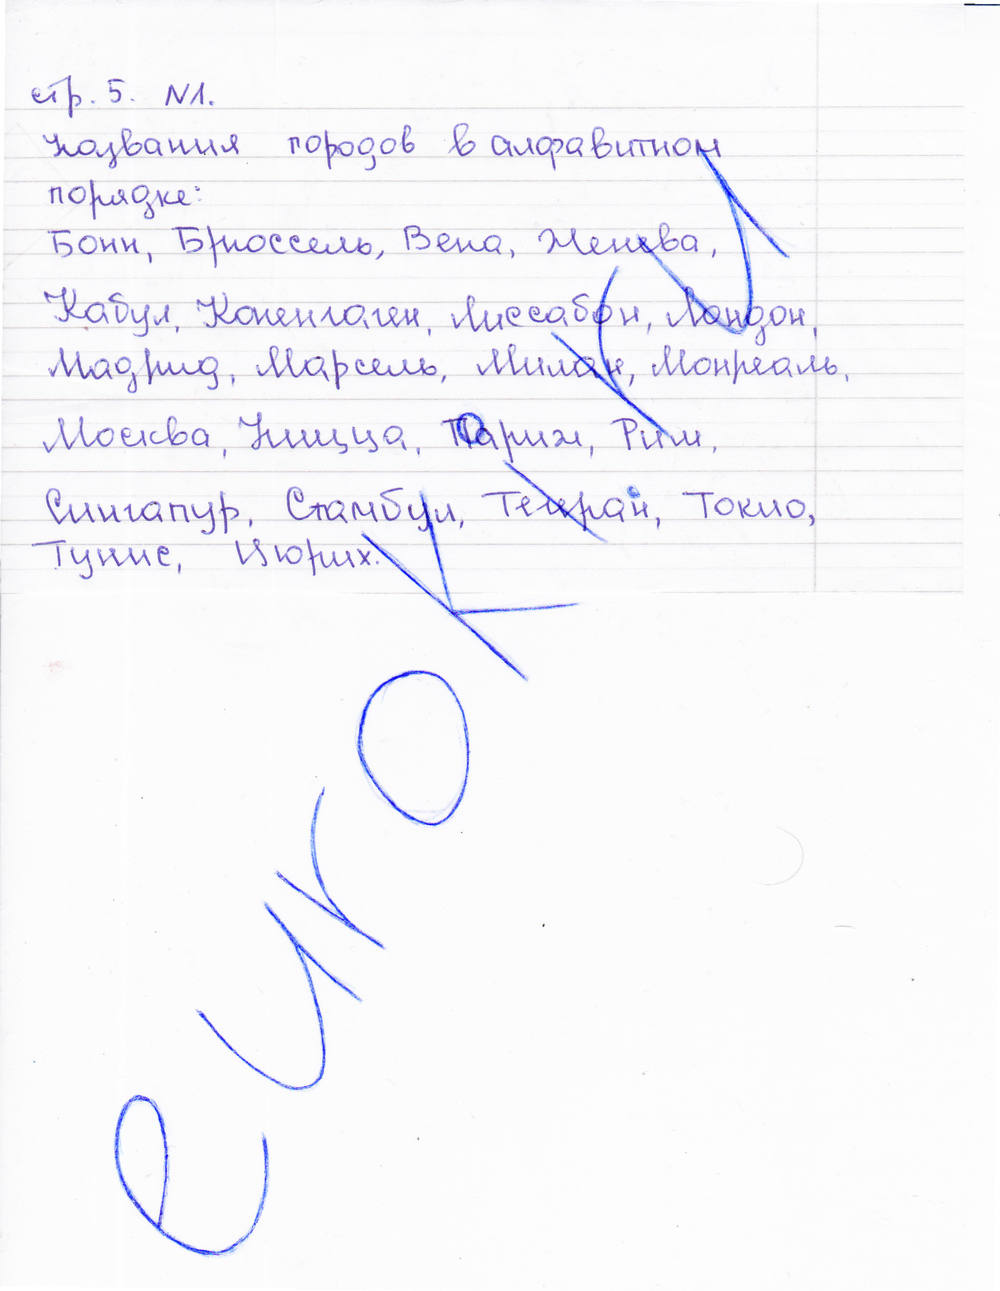 стр. 5. №1.
Названия городов в алфавитном
порядке:
Бонн, Брюссель, Вена, Женева,
Кабул, Копенгаген, Лиссабон, Лондон,
Мадрид, Марсель, Милан, Монреаль,
Москва, Ницца, Париж, Рим,
Сингапур, Стамбул, Тегеран, Токио,
Тунис, Цюрих.
eurokki.ru